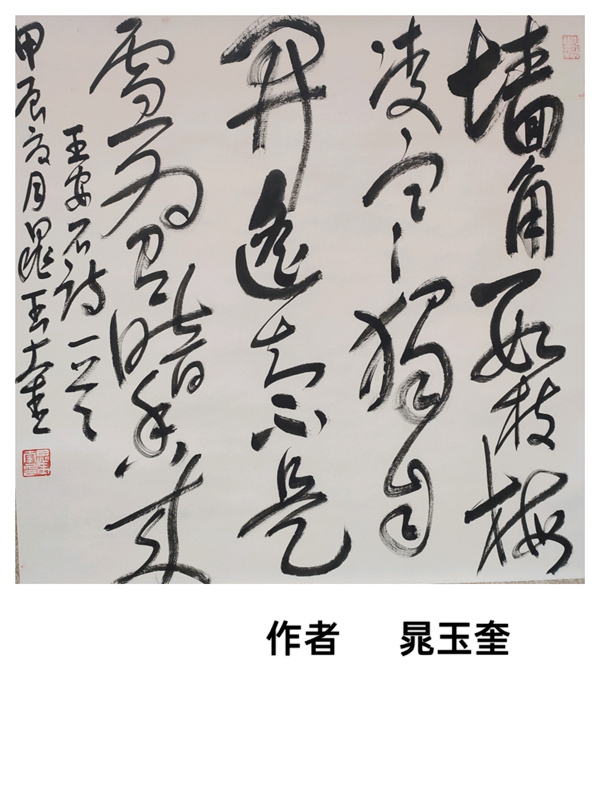 墙角数枝梅
凌寒独自
开遥知不是
雪为有暗香来
王安石诗一首
甲辰夏月晁玉奎
作者 晁玉奎